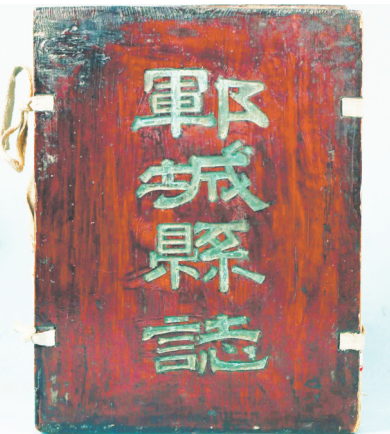 鄆城縣誌